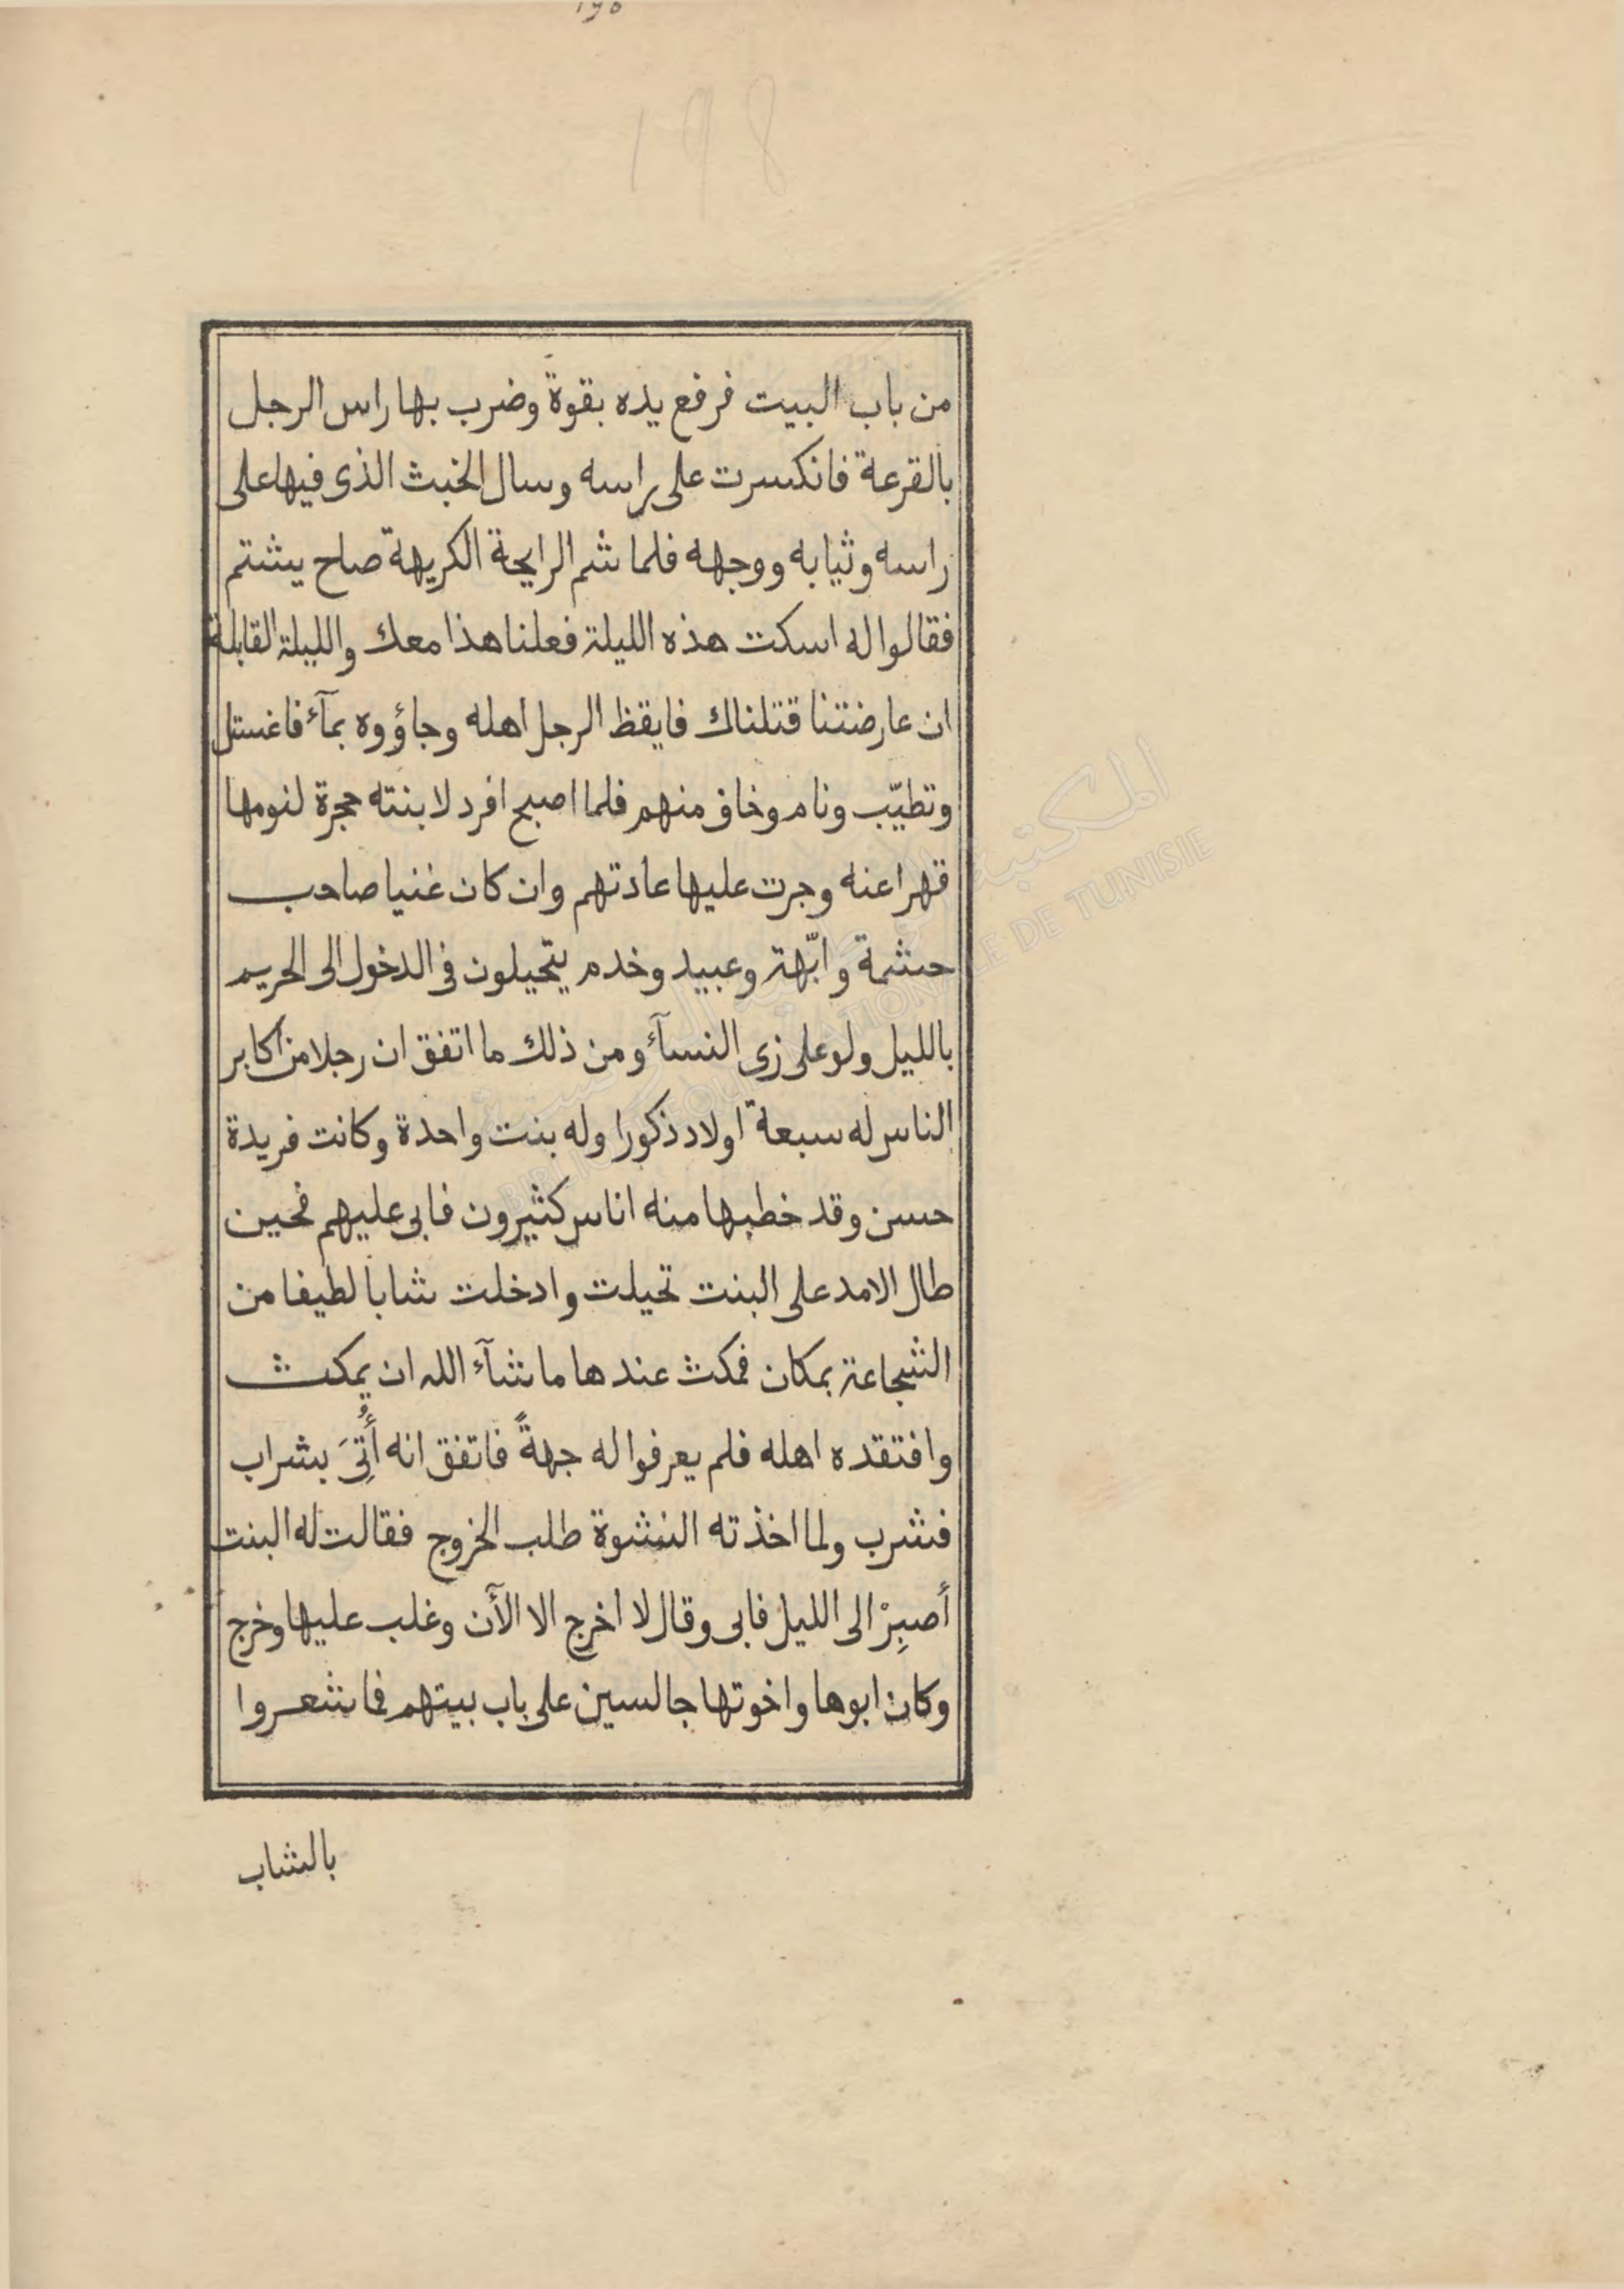 198
من باب البيت فرفع يده بقوة وضرب بها راس الرجل
بالقرعة فانكسرت على راسه وسال الخبث الذى فيها على
راسه وثيابه ووجهه فلما شم الرايحة الكريهة صاح يشتم
فقالوا له اسكت هذه الليلة فعلنا هذا معك والليلة القابلة
ان عارضتنا قتلناك فايقظ الرجل اهله وجاؤوه بمآء فاغستل
وتطيّب ونام وخاف منهم فلما اصبح افرد لابنته حجرة لنومها
قهرا عنه وجرت عليها عادتهم وان كان غنيا صاحب
حشمة وابّهة وعبيد وخدم يتحيلون فى الدخول الى الحريم
بالليل ولو على زى النسآء ومن ذلك ما اتفق ان رجلا من اكابر
الناس له سبعة اولاد ذكورا وله بنت واحدة وكانت فريدة
حسن وقد خطبها منه اناس كثيرون فابى عليهم فحين
طال الامد على البنت تحيلت وادخلت شابا لطيفا من
الشجاعة بمكان فمكث عندها ما شآء الله ان يمكث
وافتقده اهله فلم يعرفوا له جهةً فاتفق انه أُتِىَ بشراب
فشرب ولما اخذته النشوة طلب الخروج فقالت له البنت
أصبِرْ الى الليل فابى وقال لا اخرج الا الآن وغلب عليها وخرج
وكان ابوها واخوتها جالسين على باب بيتهم فما شعروا
بالشاب
المكتبة
BIBLIOTHEQUE NATIONALE DE TUNISIE